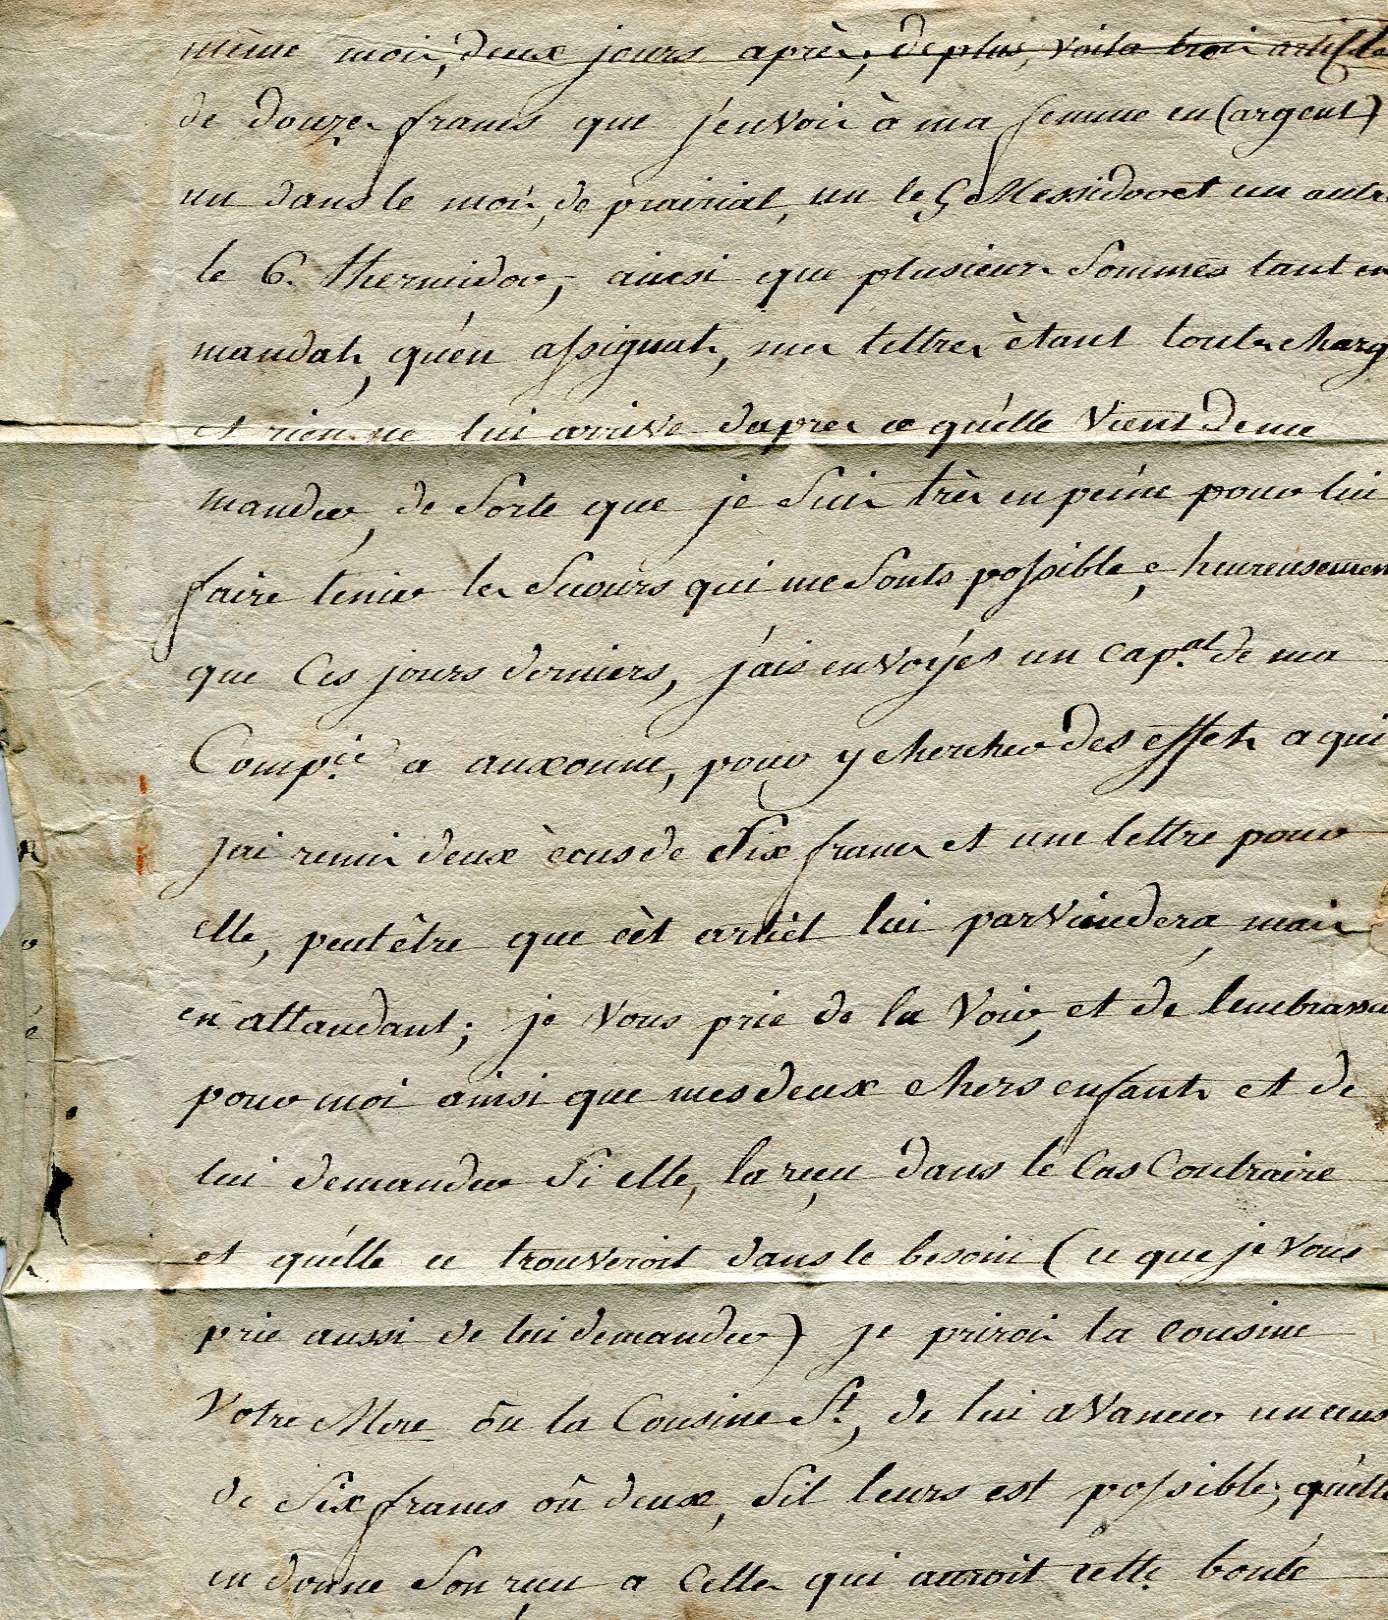 même mois, deux jours après, deplus, voila trois articles
de douze francs que j'envois à ma femme en (argent)
un dans le mois de prairial, un le 9 Messidor et un autre
le 6. thermidor, ainsi que plusieurs Sommes tant en
mandats, qu'en assignats, mes lettres ètant toutes charg
et rien ne lui arrive daprès ce qu'elle vient de me
mander, de Sorte que je Suis très en peine pour lui
faire tenir les Secours qui me Sonts possible, heureusement
que Ces jours derniers, j'ais envoyés un cap.al de ma
Comp.ie a auxonne, pour y chercher des effets a qui
jai remis deux ècus de Six francs et une lettre pour
elle, peutêtre que cèt articl lui parviendera, mais
en attandant; je vous prie de la voir, et de lembrasser
pour moi ainsi que mes deux chers enfants et de
lui demander Si elle, la reçu dans le Cas Contraire
et qu'elle ce trouveroit dans le besoin (ce que je vous
prie aussi de lui demander) je prirois la cousine
votre Mere ôu la Cousine St, de lui avancer un ecus
de Six francs ôu deux, Sil leurs est possible, qu'elle
en donne Son reçu a Celle qui auroit cette bonté